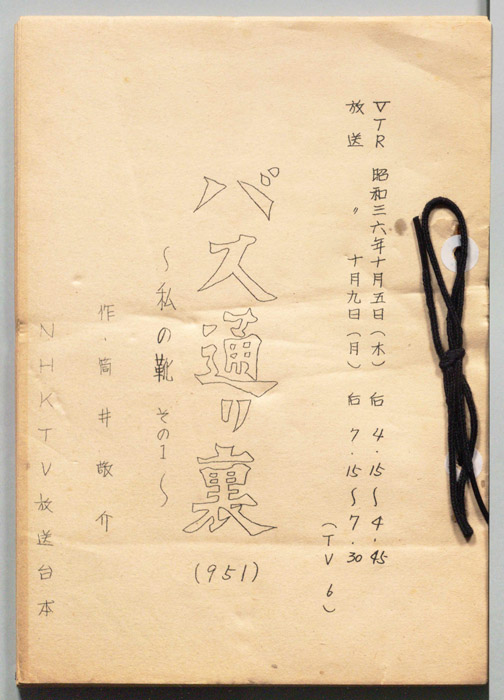 VTR 昭和三六年十月五日(木) 后 4・15〜4・45
放送 〃 十月九日(月) 后 7・15〜7・30
(TV 6)
バス通り裏
(951)
〜私の靴 その1〜
作・筒井敬介
NHKTV放送台本